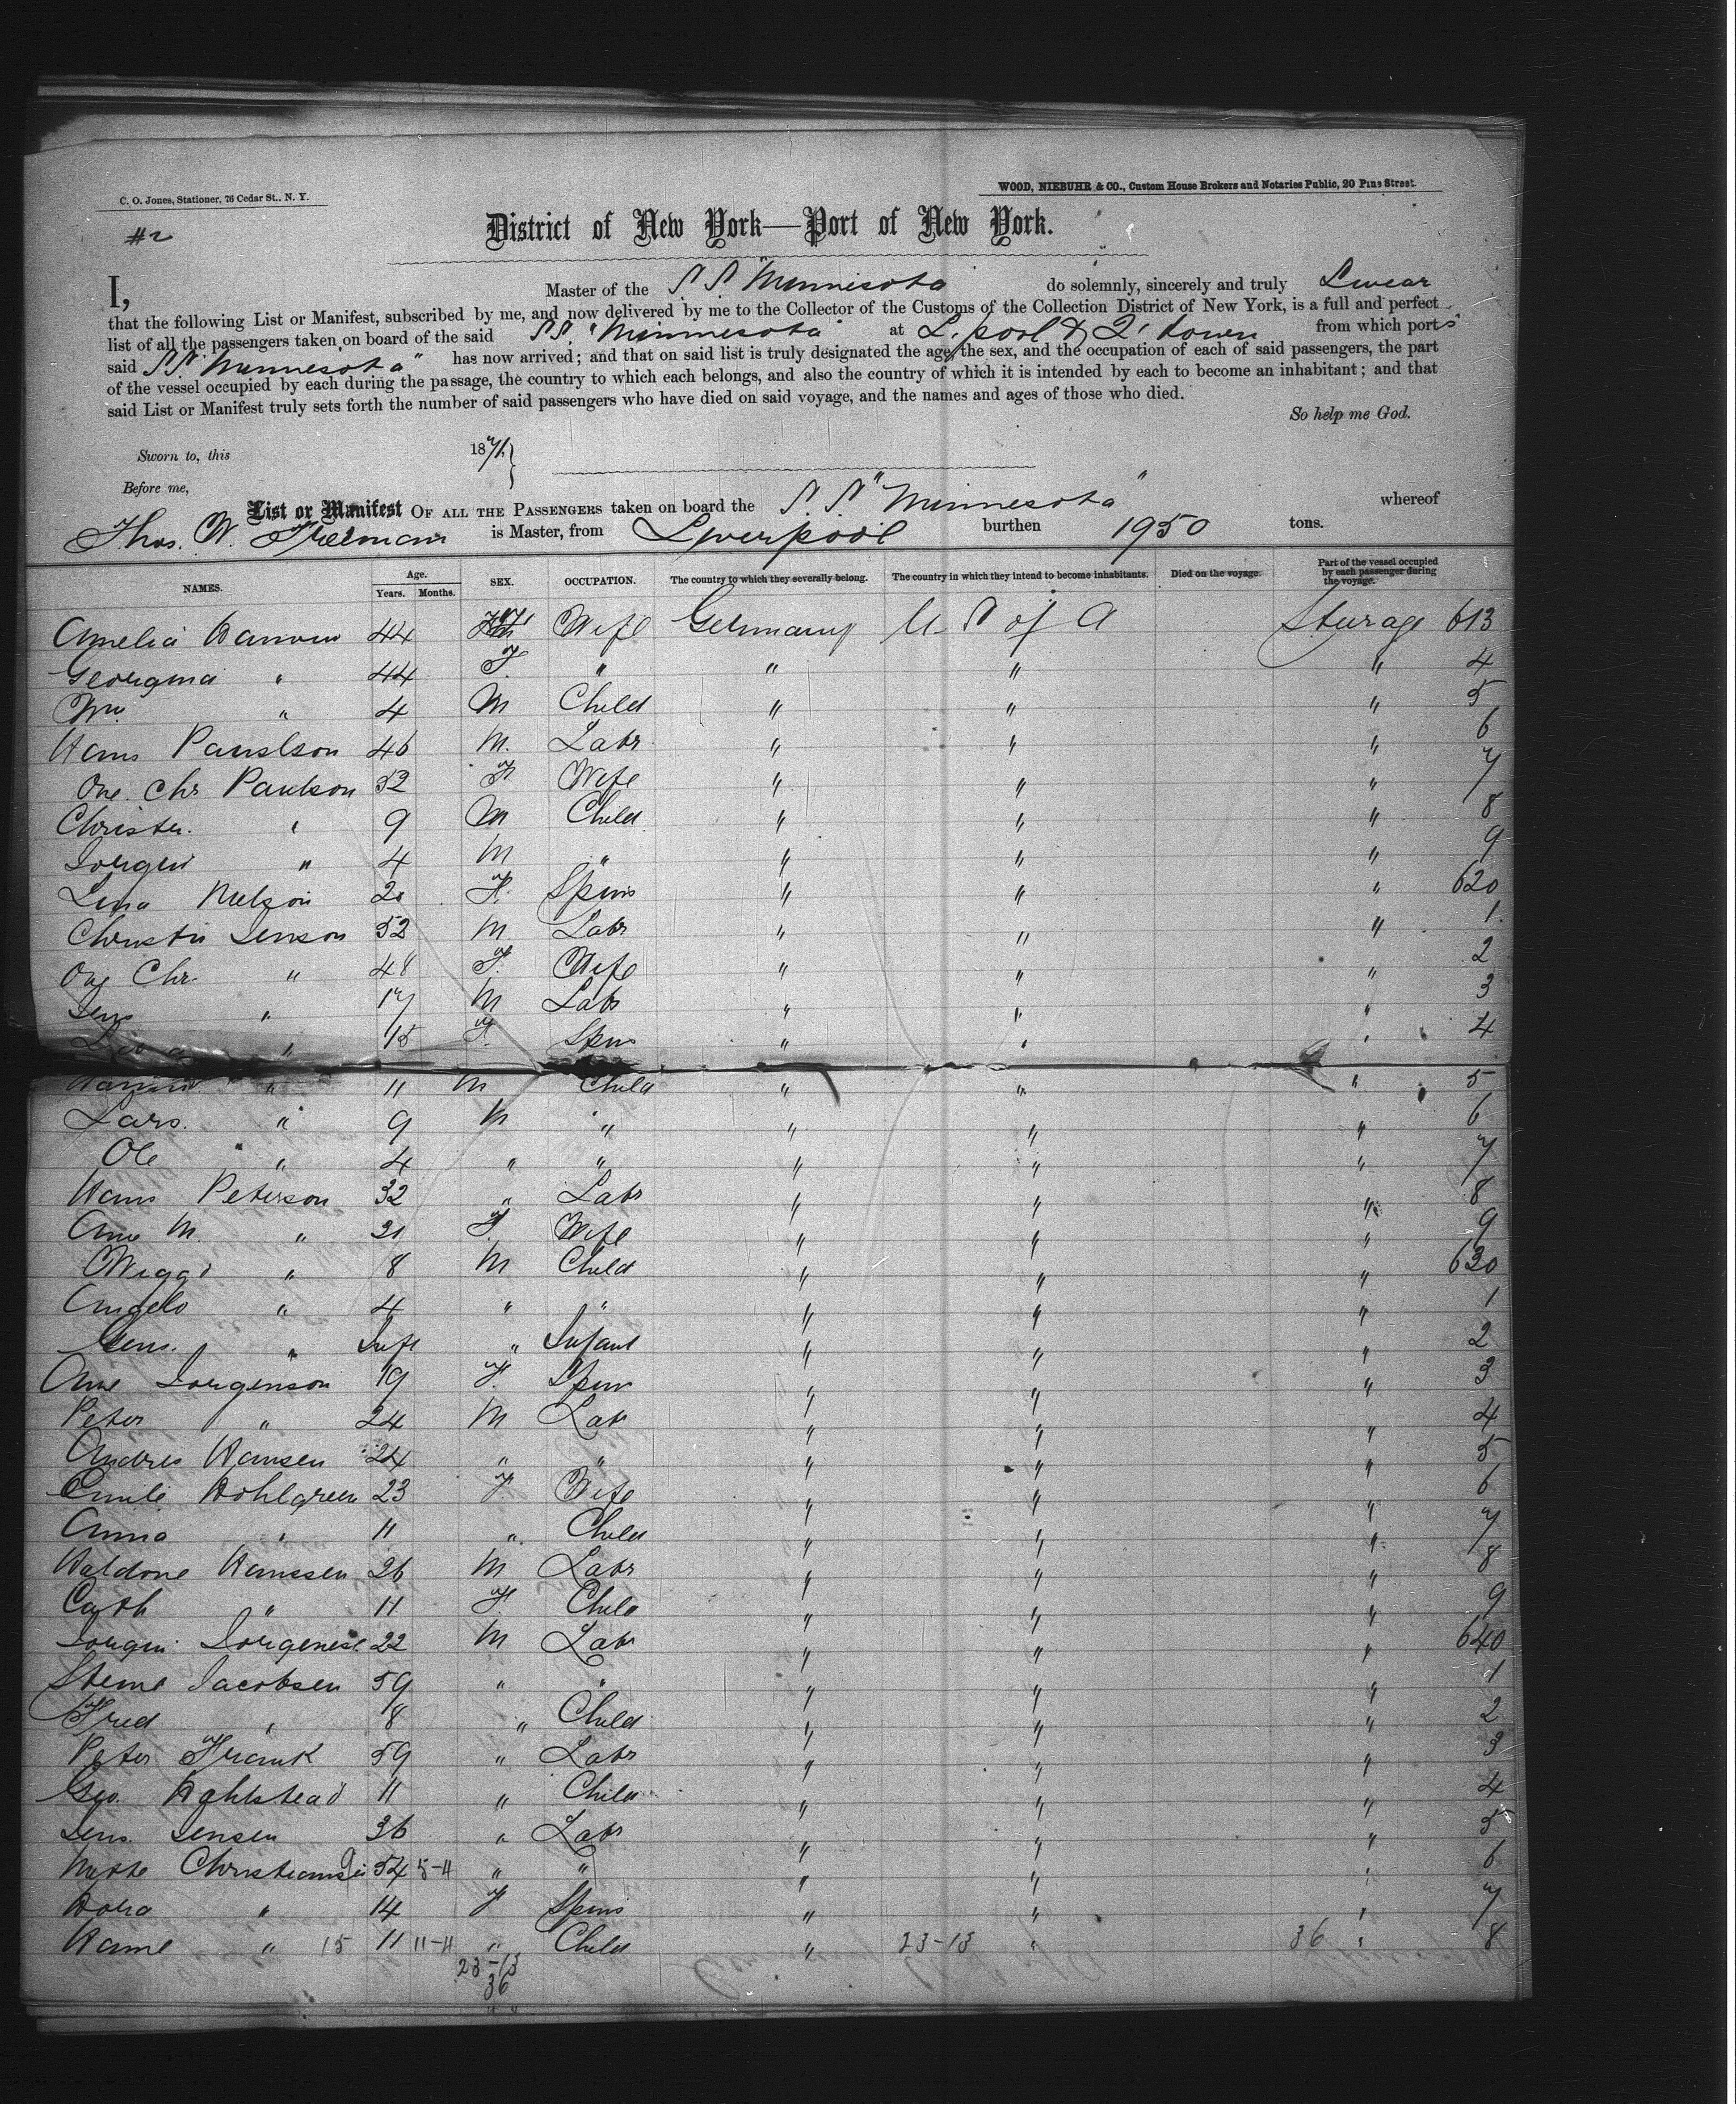 C. O. Jones, Stationer, 76 Cedar St., N. Y.
WOOD, NIEBUHR & CO., Custom House Brokers and Notaries Public, 20 Pine Street.
#2
District of New York—Port of New York.
I, Master of the S.S. "Minnesota do solemnly, sincerely and truly Swear
that the following List or Manifest, subscribed by me, and now delivered by me to the Collector of the Customs of the Collection District of New York, is a full and perfect
list of all the passengers taken on board of the said S.S. "Minnesota" at L.pool & Q'town from which ports
said S.S. "Minnesota" has now arrived; and that on said list is truly designated the age, the sex, and the occupation of each of said passengers, the part
of the vessel occupied by each during the passage, the country to which each belongs, and also the country of which it is intended by each to become an inhabitant; and that
said List or Manifest truly sets forth the number of said passengers who have died on said voyage, and the names and ages of those who died.
So help me God.
Sworn to, this 1871.
Before me,
List or Manifest OF ALL THE PASSENGERS taken on board the S.S. "Minnesota" whereof
Thos. W. Freeman is Master, from Liverpool burthen 1950 tons.
NAMES. Age. Years. Months. SEX. OCCUPATION. The country to which they severally belong. The country in which they intend to become inhabitants. Died on the voyage. Part of the vessel occupied by each passenger during the voyage.
Amelia 44 Wife Germany U.S of A Steerage 613
Georgina " 44 F. " " " " 4
Wm. " 4 M Child " " " 5
Hans Paulson 46 M. Labr " " " 6
Ane. Chr Paulson 32 F Wife " " " 7
Christn. " 9 M Child " " " 8
Jorgen " 4 M " " " " 9
Lina Nielson 20 F. Spins " " " 620
Christn Jenson 52 M Labr " " " 1.
Ane Chr. " 48 F. Wife " " " 2
Jens " 17 M Labr " " " 3
" 15 F. Spins " " " 4
" 11 M Child " " " 5
Lars. " 9 M " " " " 6
Ole " 4 " " " " " 7
Hans Peterson 32 " Labr " " " 8
Ane M. " 21 F. Wife " " " 9
Wiggo " 8 M Child " " " 630
Angelo " 4 " " " " " 1
Jens. " Inft " Infant " " " 2
Ane Jorgenson 19 F. Spin " " " 3
Peter " 24 M Labr " " " 4
Andres Hansen 24 " " " " " 5
Emile Hohlgreen 23 F Wife " " " 6
Anna " 11 " Child " " " 7
Haldone Hanssen 26 M Labr " " " 8
Cath " 11 F. Child " " " 9
Jorgen Jorgensen 22 M Labr " " " 640
Jacobsen 59 " " " " " 1
Fred " 8 " Child " " " 2
Peter Frank 59 " Labr " " " 3
Geo. Hahlstead 11 " Child " " " 4
Jens. Jensen 36 " Labr " " " 5
Christiansen 54 5-4 " " " " " 6
Dora " 14 F Spins " " " 7
Hanne " 15 11 11-4 " Child " 23-13 " 36 " 8
23-13
36